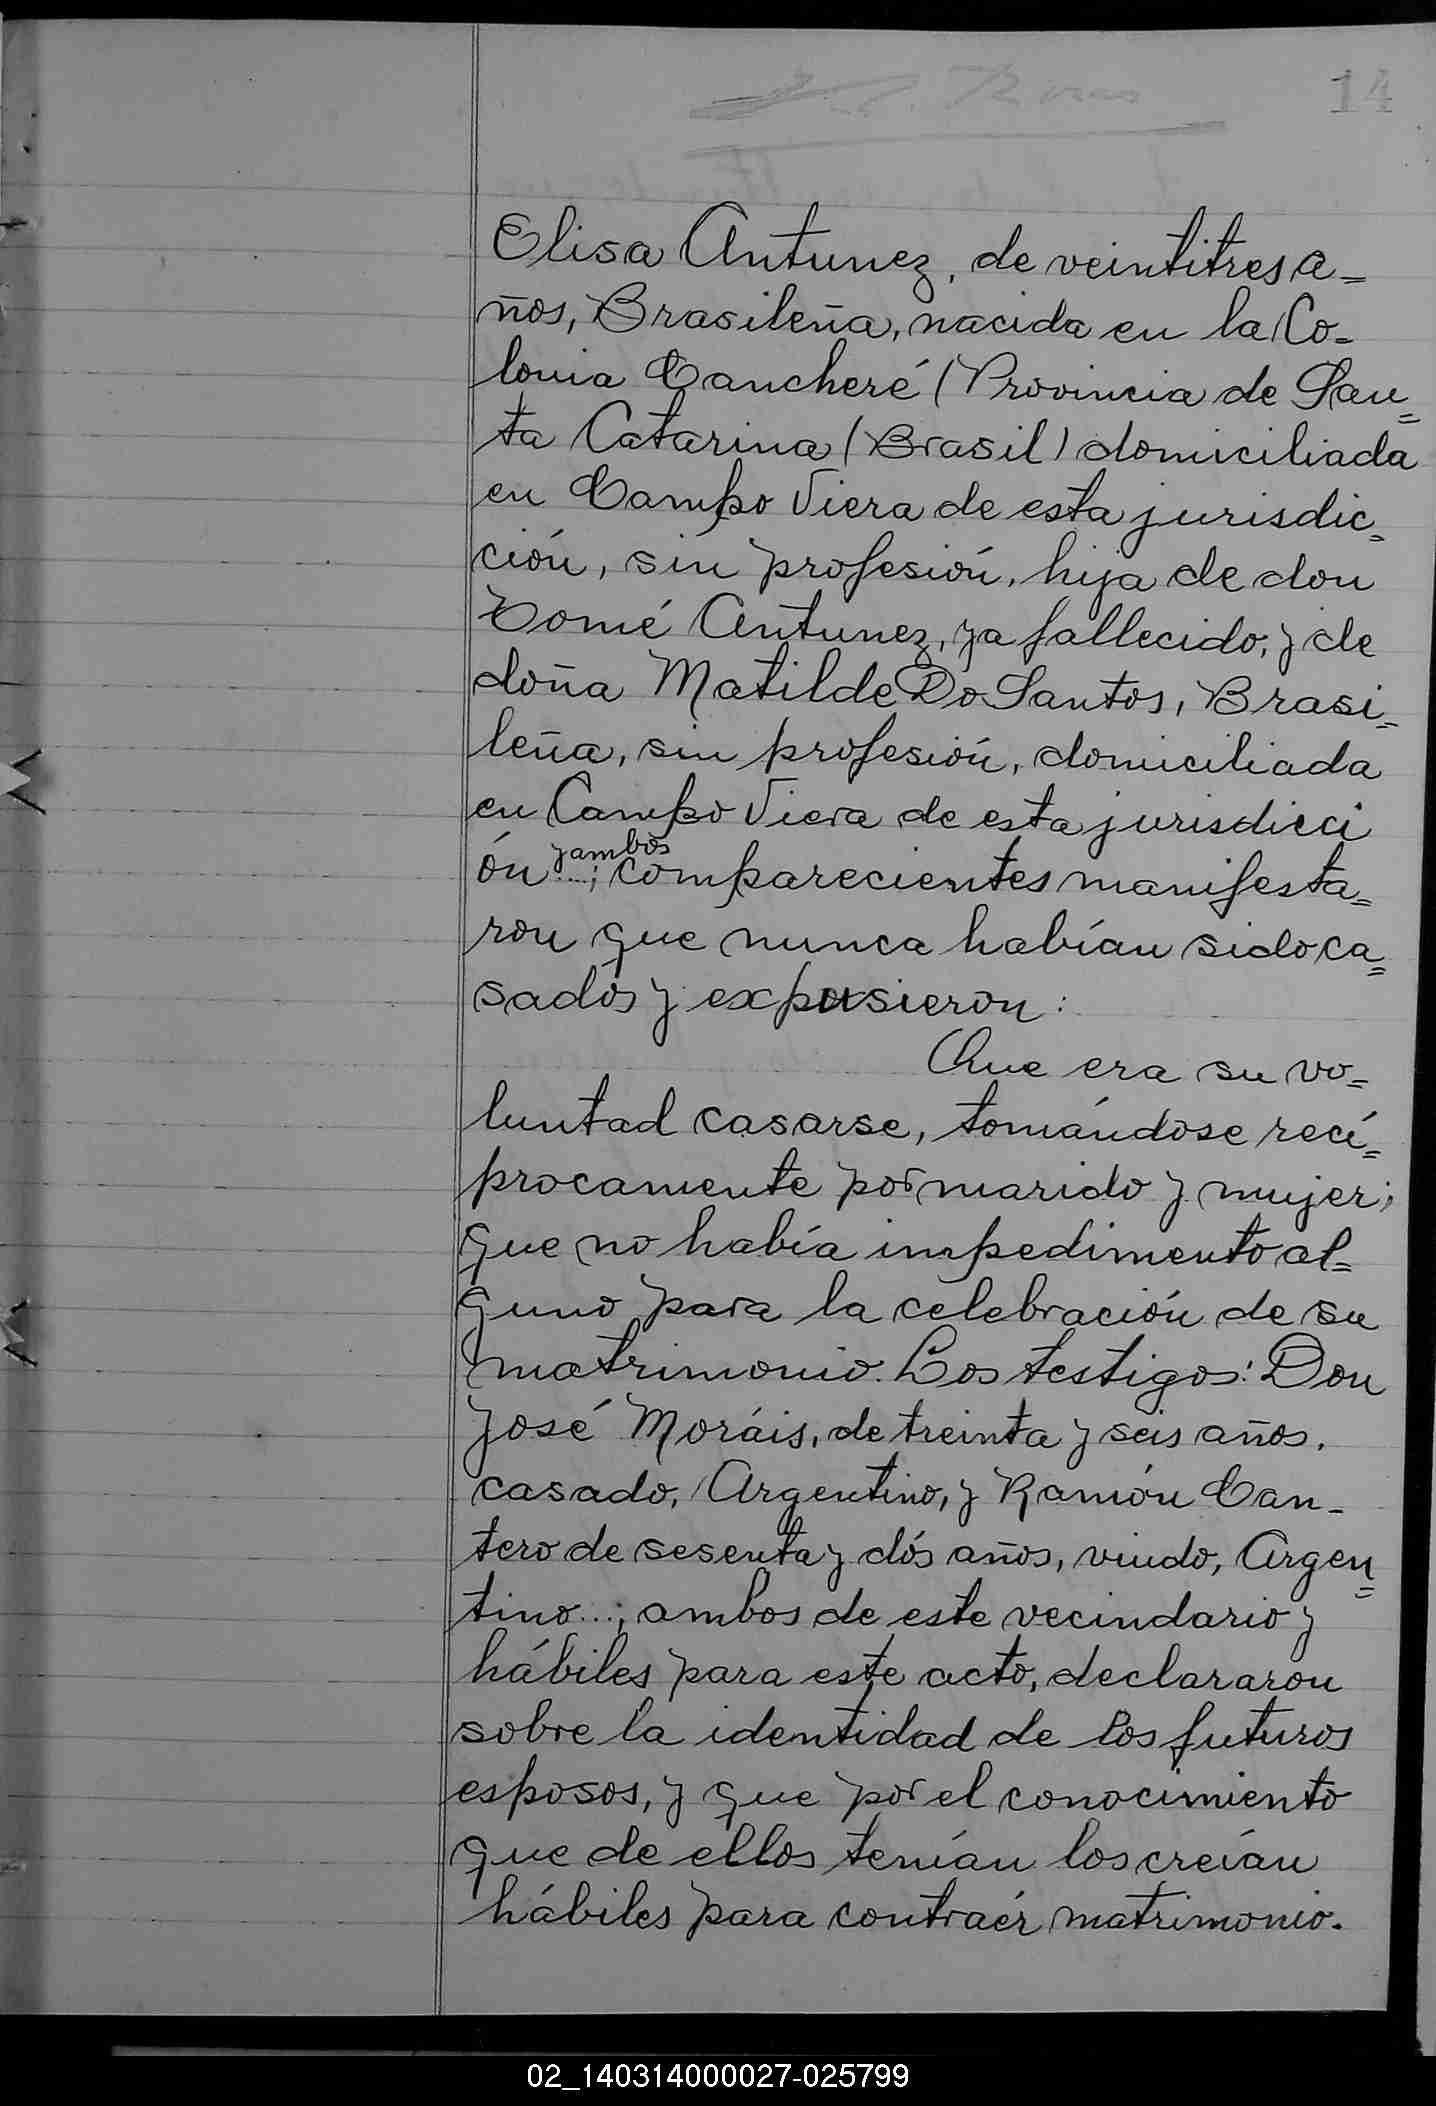 14
Elisa Antunez, de veintitres a=
ños, Brasileña, nacida en la Co=
lonia Cancheré (Provincia de San=
ta Catarina (Brasil) domiciliada
en Campo Viera de esta jurisdic=
ción, sin profesión, hija de don
Tomé Antunez, ya fallecido, y de
doña Matilde Do Santos, Brasi=
leña, sin profesión, domiciliada
en Campo Viera de esta jurisdicci
y ambos
ón...; comparecientes manifesta=
ron que nunca habían sido ca=
sados y expusieron:
Que era su vo=
luntad casarse, tomándose recí=
procamente por marido y mujer;
que no había impedimento al=
guno para la celebración de su
matrimonio. Los testigos: Don
José Moráis, de treinta y seis años,
casado, Argentino, y Ramón Can-
tero de sesenta y dós años, viudo, Argen=
tino...; ambos de este vecindario y
hábiles para este acto, declararon
sobre la identidad de los futuros
esposos, y que por el conocimiento
que de ellos tenían los creían
hábiles para contraér matrimonio.
02_140314000027-025799